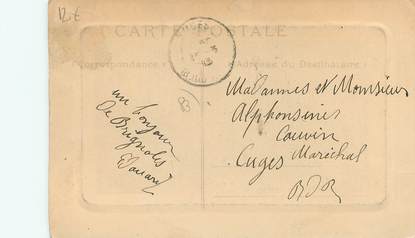 CARTE POSTALE
Correspondance
Adresse du Destinataire
un bonjour
de Brignoles
Edouard
Madannes et Monsieur
Alphonsines
Couvin
Maréchal
Cuges
BDR